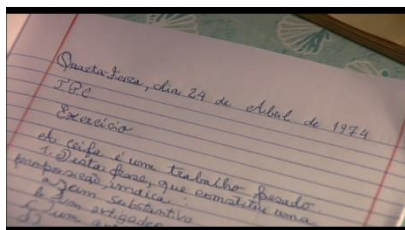 Quarta-feira, dia 24 de Abril de 1974
TPC
Exercício
A ceifa é um trabalho pesado
1. Desta frase, que constitui uma
composição, indica:
a) um substantivo
b) um artigo
c) um